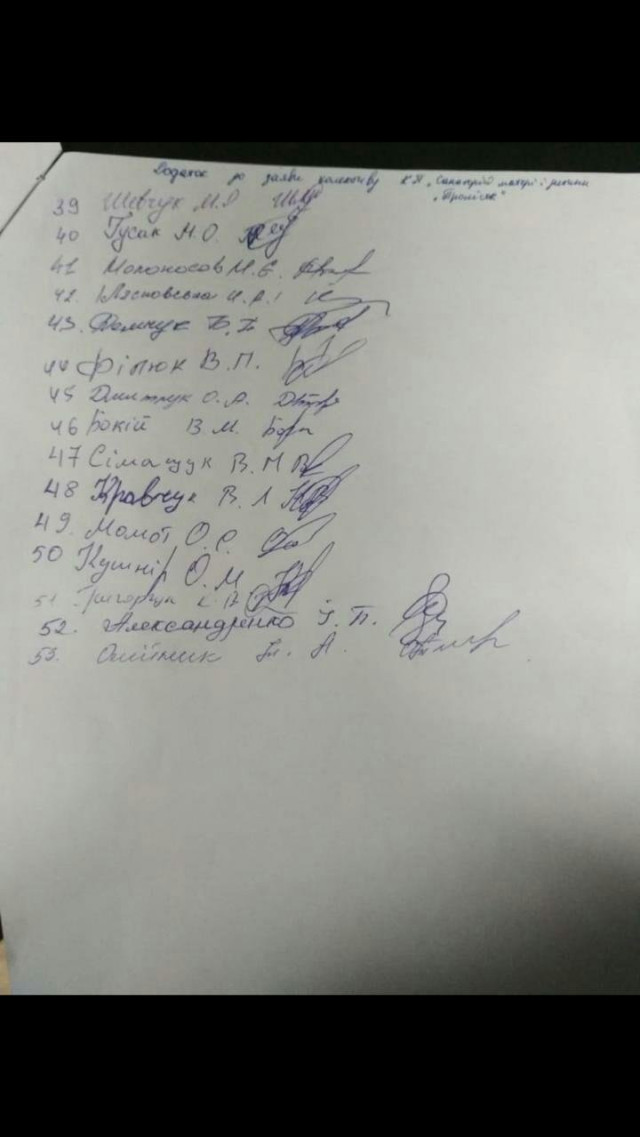 Додаток до заяви колективу КП „Санаторій матері і дитини
„Пролісок"
39 Шевчук М.Я
40 Гусак Н.О.
41 Молоносов М.Є.
42.
43. Демчук
44 Філюк В.П.
45 Дмитрук О.А.
46 Бокій В.М.
47 Сімащук В.М
48 Кравчук В.Л
49. Момот О.С.
50 Кушнір О.М
51
52. Александренко І.П.
53. Олійник Т. А.